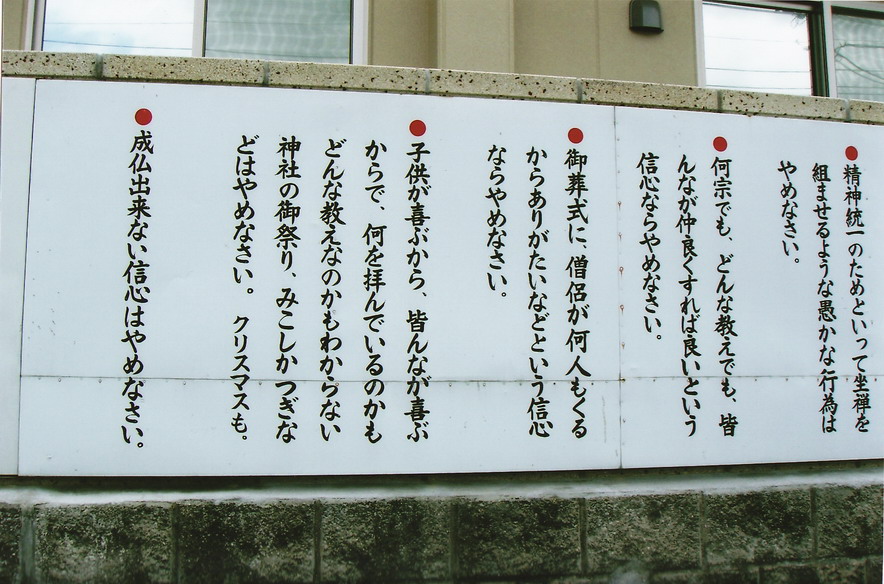 ●精神統一のためといって坐禅を
組ませるような愚かな行為は
やめなさい。
●何宗でも、どんな教えでも、皆
んなが仲良くすれば良いという
信心ならやめなさい。
●御葬式に、僧侶が何人もくる
からありがたいなどという信心
ならやめなさい。
●子供が喜ぶから、皆んなが喜ぶ
からで、何を拝んでいるのかも
どんな教えなのかもわからない
神社の御祭り、みこしかつぎな
どはやめなさい。クリスマスも。
●成仏出来ない信心はやめなさい。